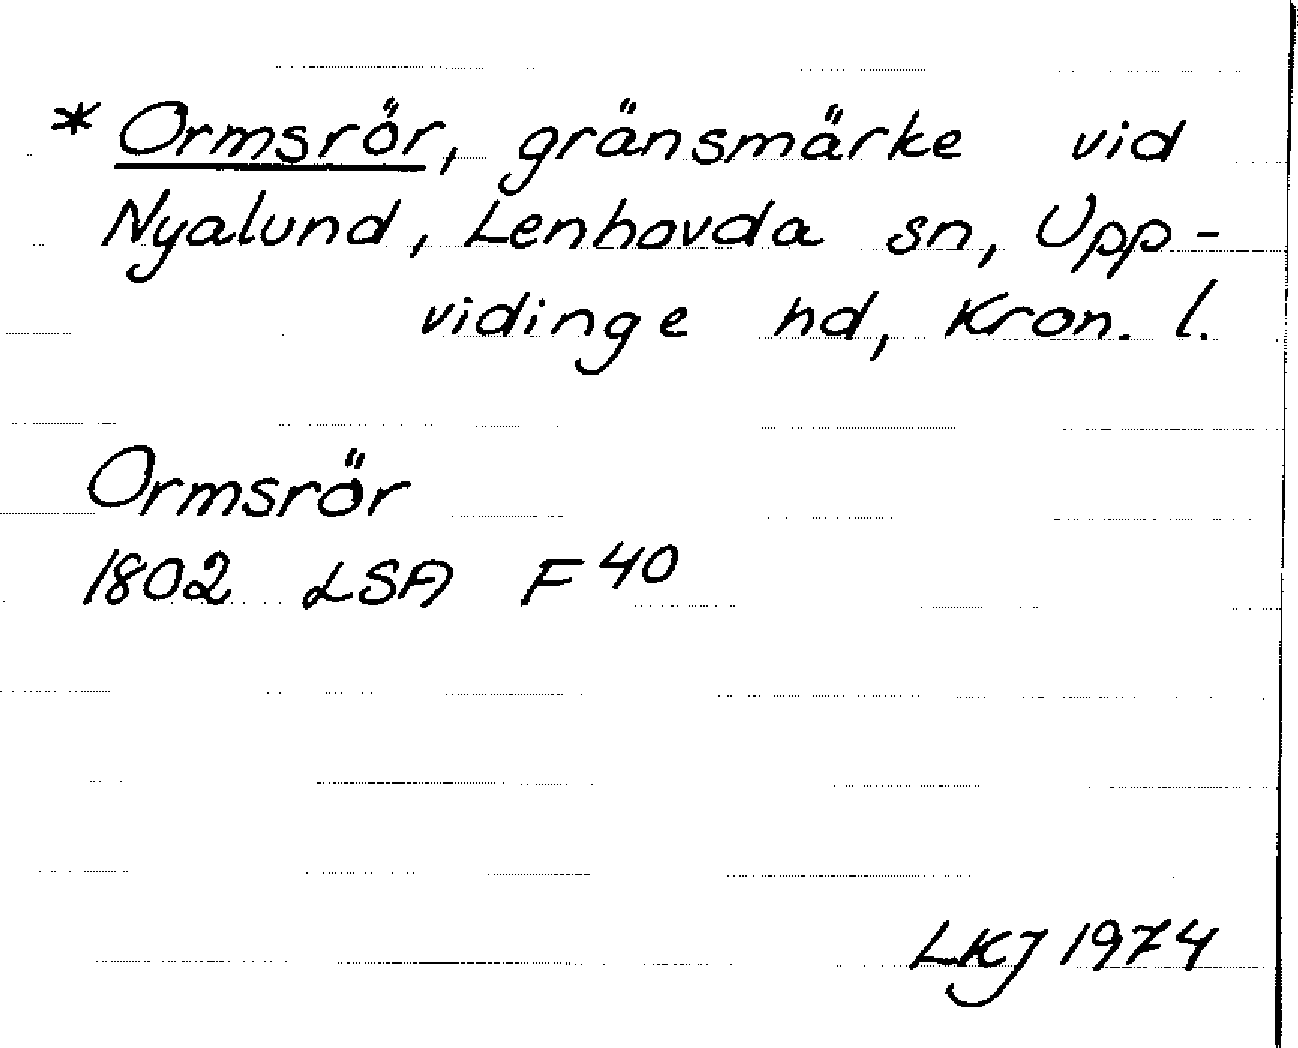 * Ormsrör, gränsmärke vid
Nyalund, Lenhovda sn, Upp-
vidinge hd, Kron. l.
Ormsrör
1802 LSA F 40
LKJ 1974